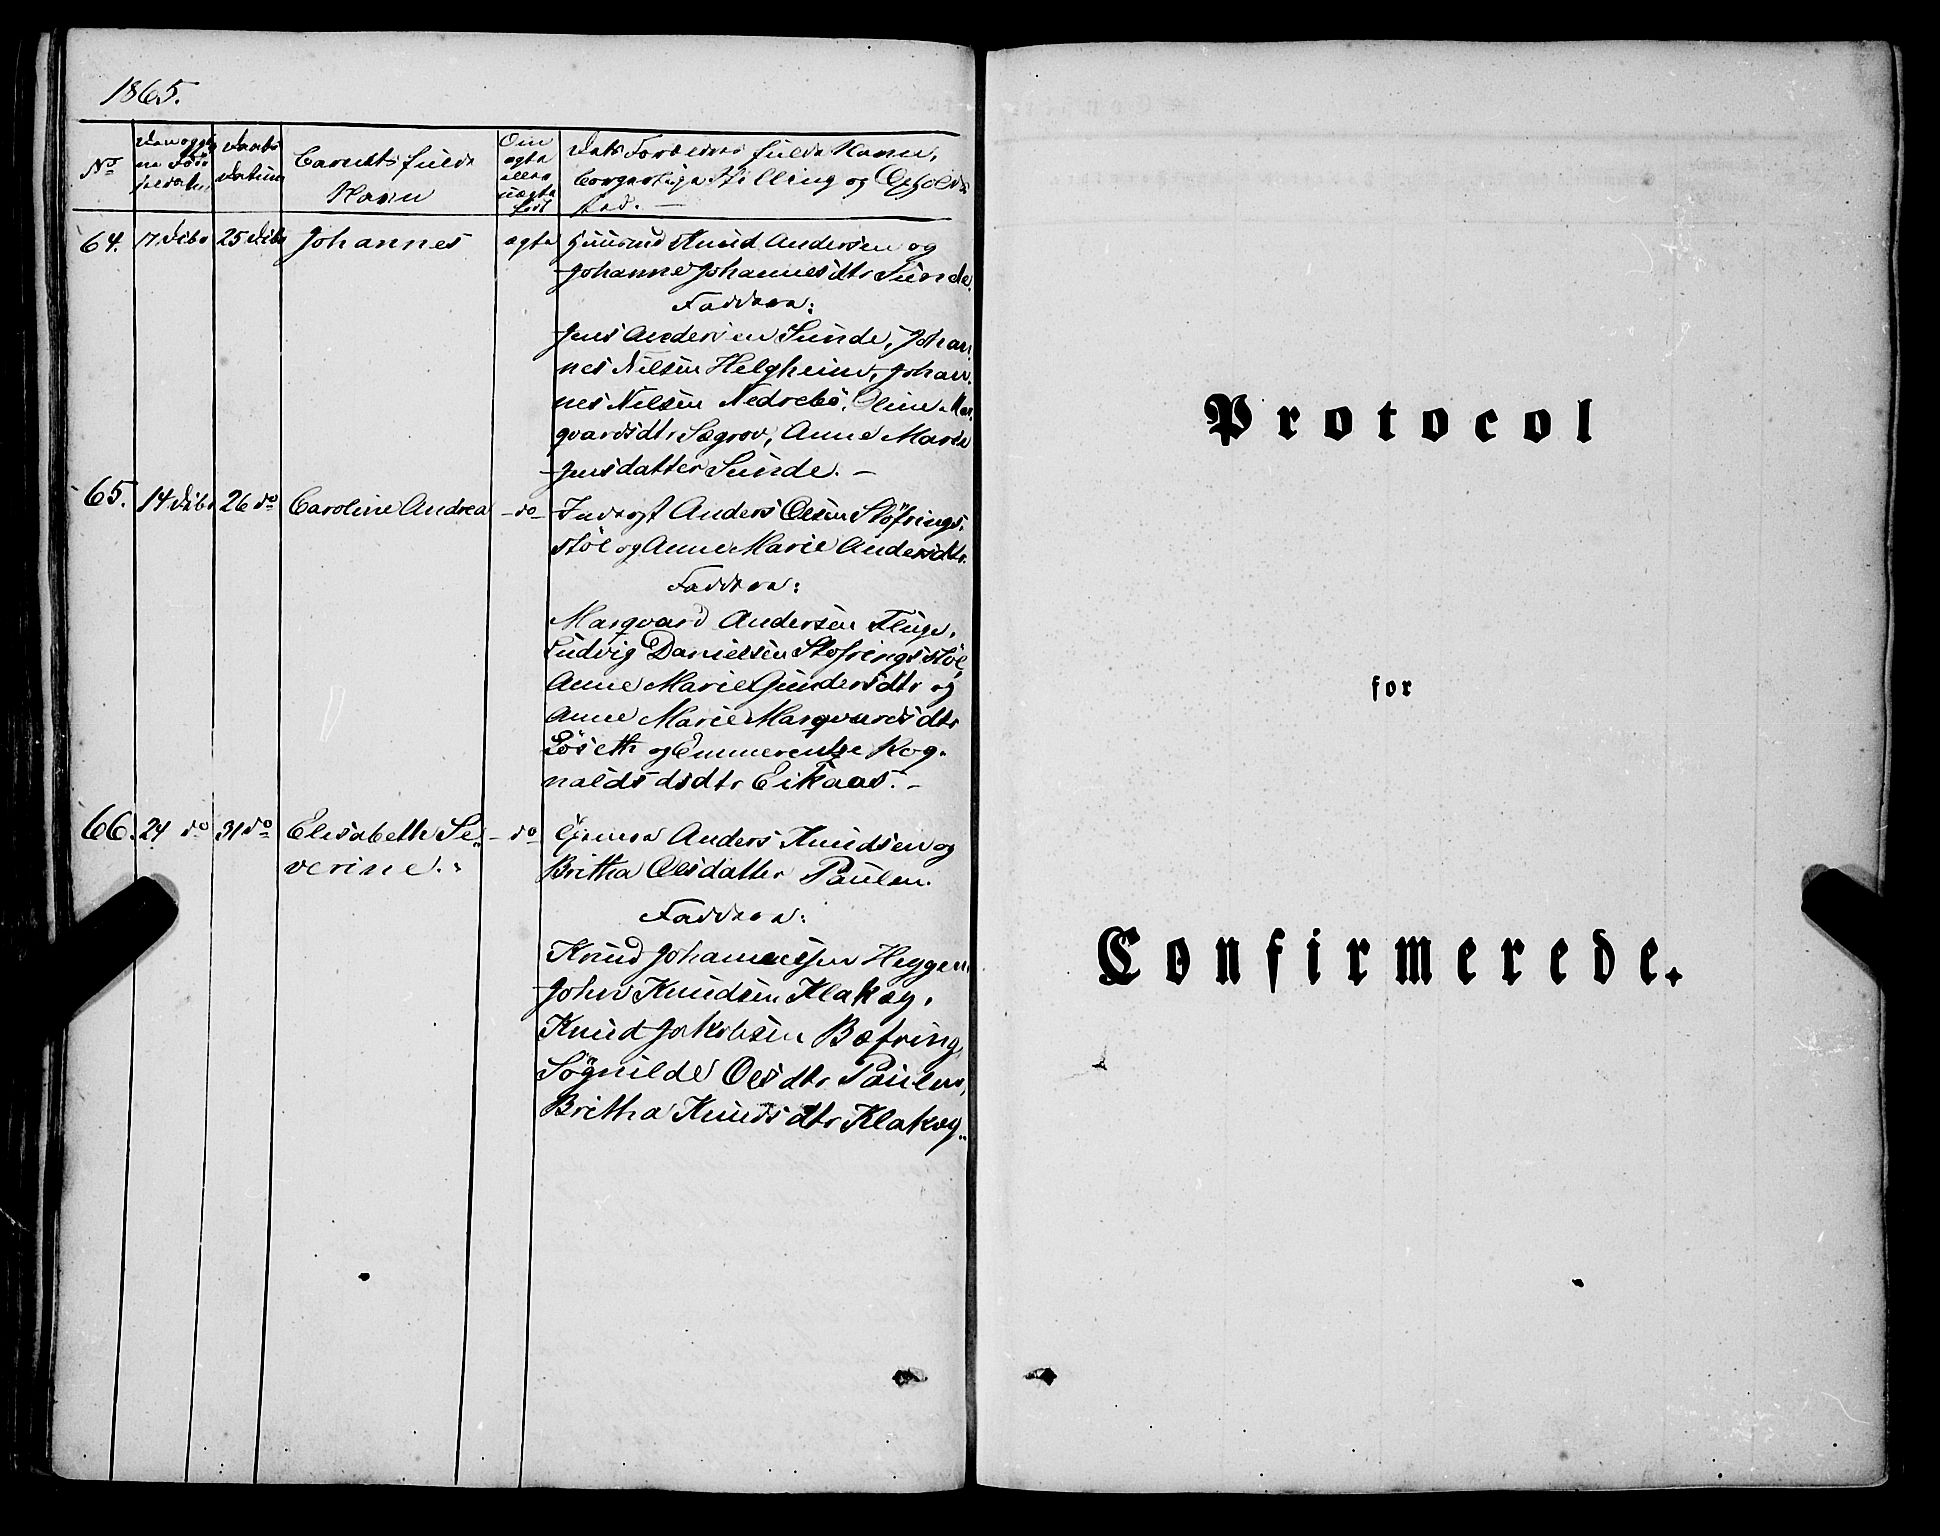 1865.
No
Dato
Datum
Barnets fulde
Navn
Om
ægte
eller
uægte
født
Dets Forældres fulde Navne,
borgerlige Stilling og Opholds
sted. —
64. 7 Dibr 25 Dibr Johannes ægte Huusmd Knud Andersen og
Johanne Johannesdtr Sunde.
Faddere:
Jens Andersen Sunde, Johan
nes Nilsen Helgheim, Johan
nes Nilsen Nedrebö, Oline Mar
qvardsdtr Sægrov, Anne Marie
Jensdatter Sunde. —
65. 14 Dibr 26 do Caroline Andrea — do — Inderst Anders Olsen Stöfrings
stöl og Anne Marie Andersdtr.
Faddere:
Marqvard Andersen Fluge,
Ludvig Danielsen Stofringsstöl
Anne Marie Gundersdtr og
Anne Marie Marqvardsdtr
Löseth og Emmerentze Rog
naldsdsdtr Eikaas. —
66. 24 do 31 do Elisabeth Se — do Gaardmd Anders Knudsen og
verine.
Britha Olsdatter Paulen.
Faddere:
Knud Johannessen Heggen
John Knudsen Klakeg,
Knud Jakobsen Bæfring,
Sögnilde Olsdtr Paulen,
Britha Knudsdtr Klakeg.
Protocol
for
Confirmerede.